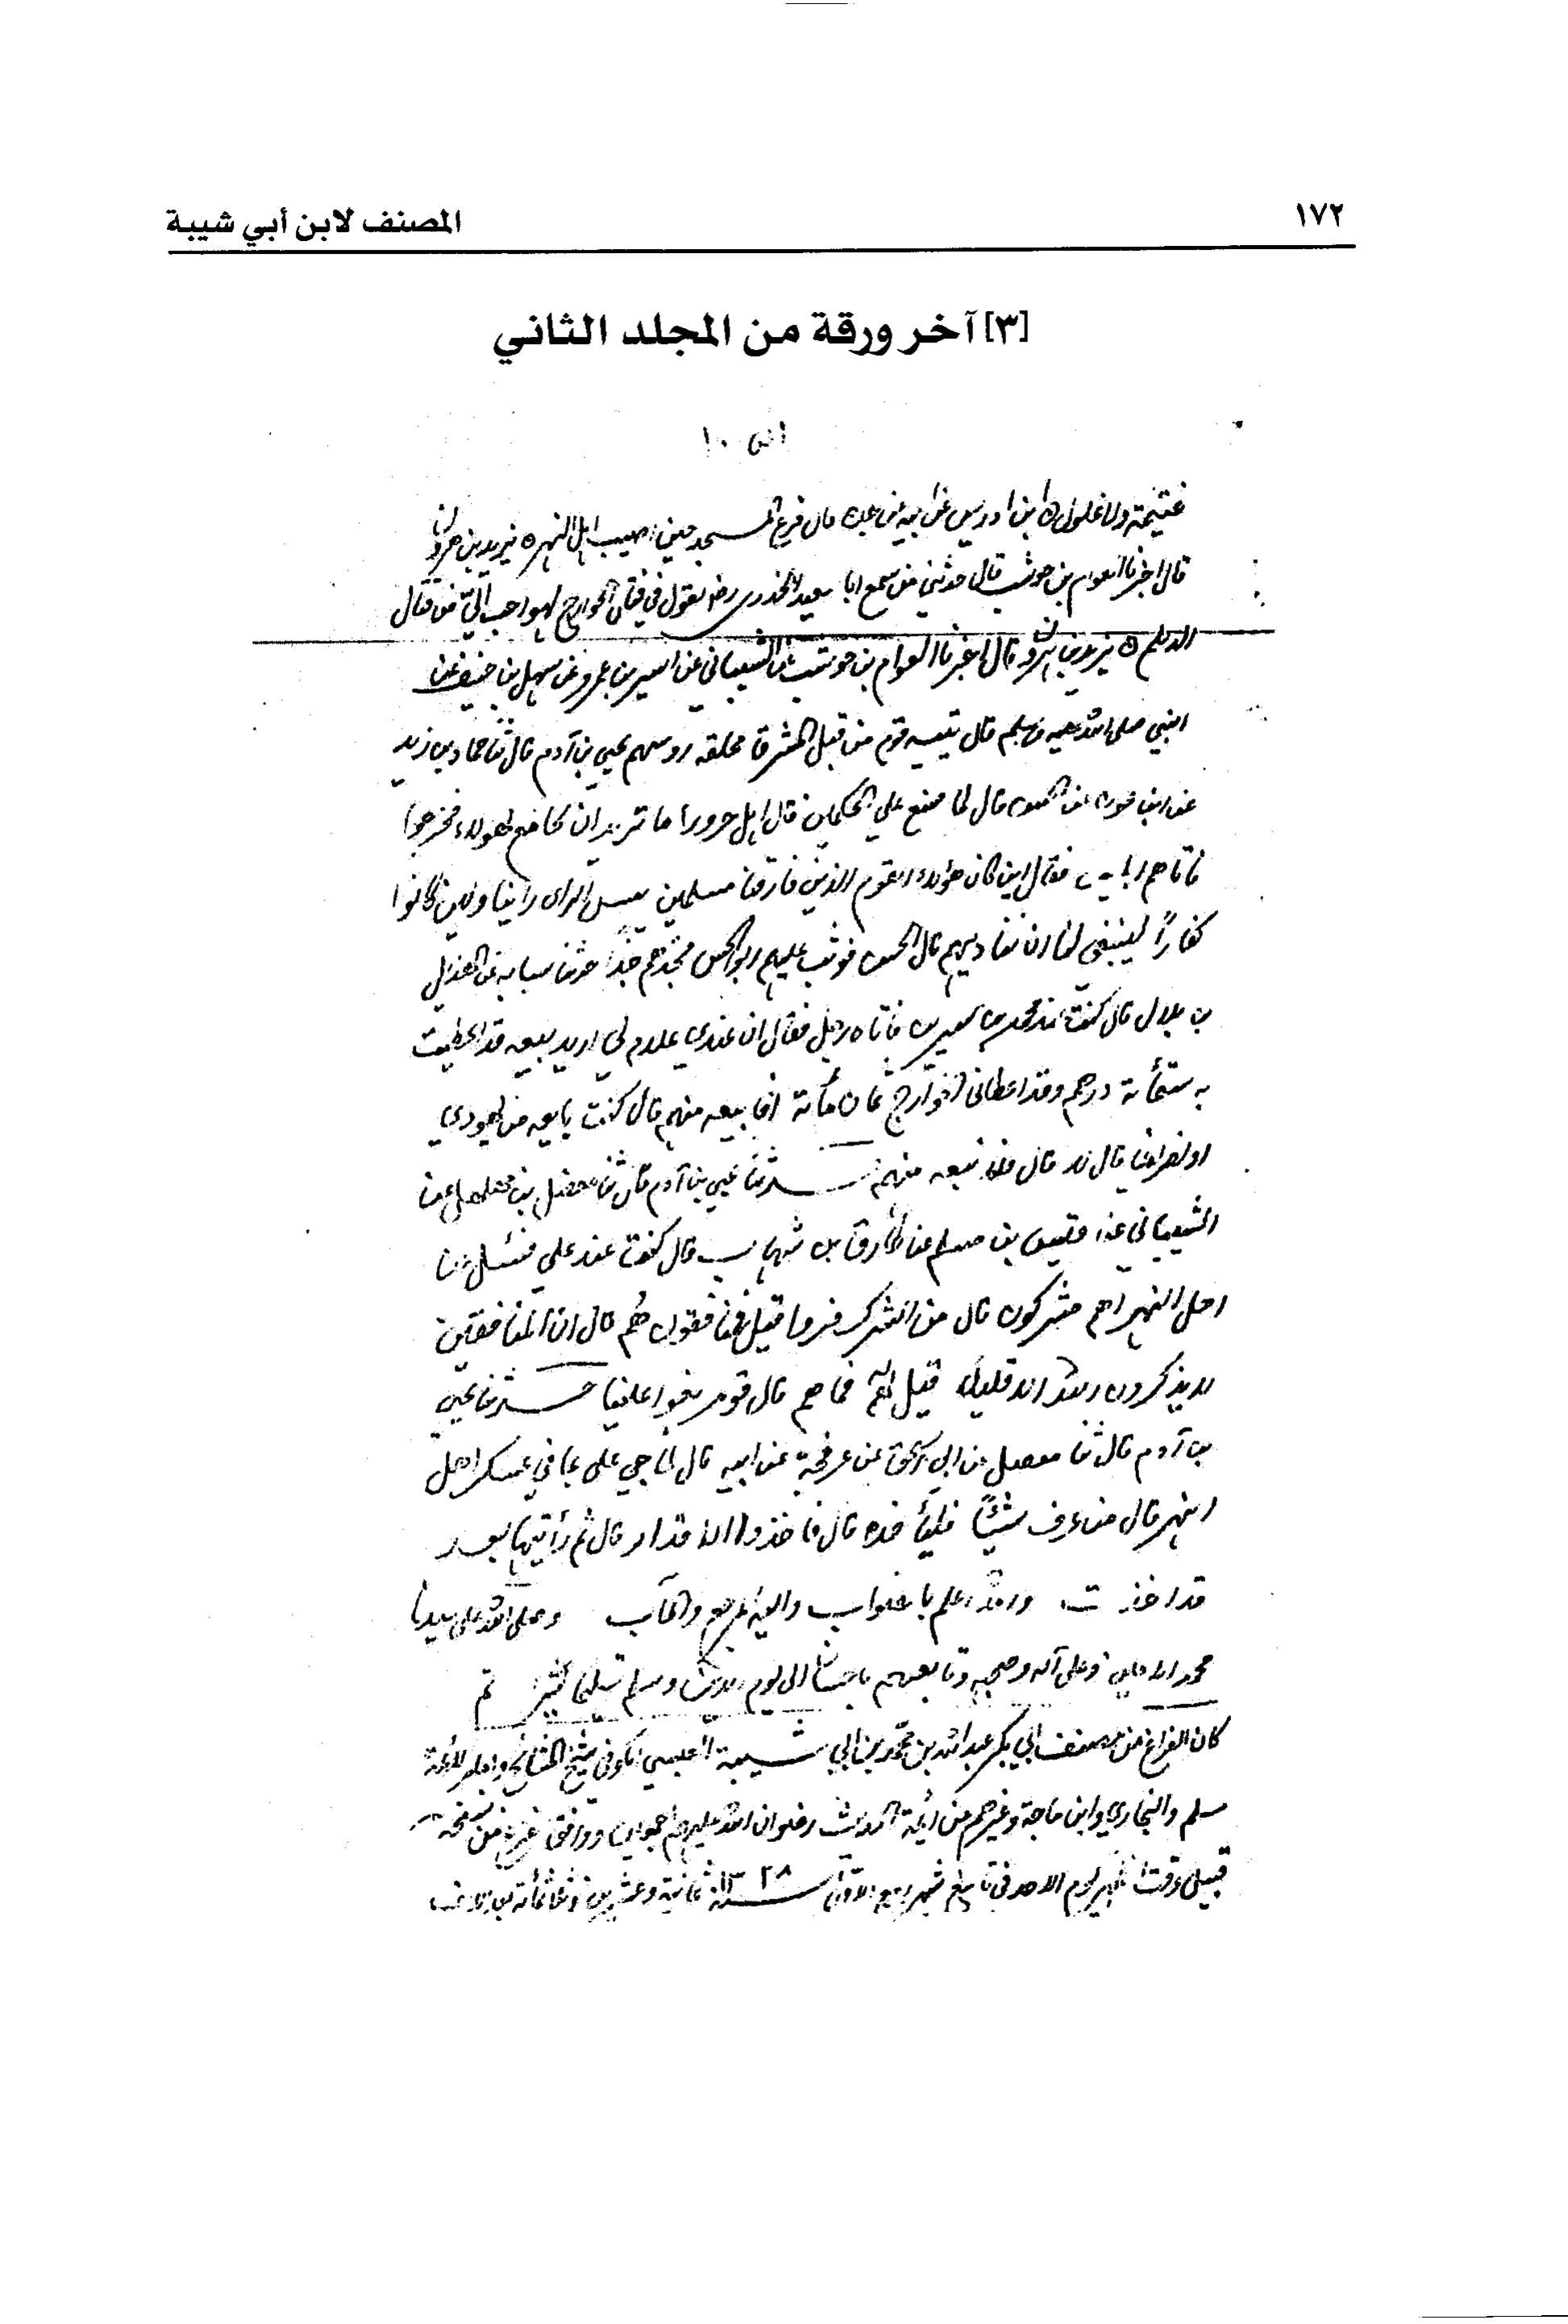 ١٧٢
المصنف لابن أبي شيبة
[٣] آخر ورقة من المجلد الثاني
غنيمة ولا غلول ابن ادريس عن ابيه عن جده قال فزع المسجد حين اصيب اهل النهر يزيد بن هرون
قال اخبرنا العوام بن حوشب قال حدثني من سمع ابا سعيد الخدري رضـ يقول في قتال الخوارج لهو احب الي من قتال
الديلم يزيد بن هرون قال اخبرنا العوام بن حوشب ثنا الشيباني عن اسير بن عمرو عن سهل بن حنيف عن
النبي صلى الله عليه وسلم قال يتيه قوم من قبل المشرق محلقه روسهم يحيى بن آدم قال ثنا حماد بن زيد
عن ابن عون عن الحسن قال لما صنع علي الحكمان قال اهل حرورا ما تريد ان تجامع لهولاء فخرجوا
فاتاهم ابليس فقال اين كان هؤلاء القوم الذين فارقنا مسلمين لبيس الراى راينا ولئن كانوا
كفاراً لينبغي لنا ان نناديهم قال الحسن فوثب عليهم ابو الحسن فجذهم جذا حدثنا شبابه عن الهذيل
بن بلال قال كنت عند محمد بن سيرين فاتاه رجل فقال ان عندي غلام لي اريد بيعه قد اعطيت
به ستمأئة درهم وقد اعطاني الخوارج ثمان مأئة افابيعه منهم قال كنت بايعه من يهودي
او نصراني قال لا قال فلا تبعه منهم حدثنا يحيى بن آدم قال ثنا مفضل بن مهلهل عن
الشيباني عن قيس بن مسلم عن طارق بن شهاب قال كنت عند علي فسئل عن
اهل النهر اهم مشركون قال من الشرك فروا قيل فمنافقون هم قال ان المنافقين
لا يذكرون الله الا قليلا قيل لهم فما هم قال قوم بغوا علينا حدثنا يحيى
بن آدم قال ثنا مفضل عن ابي اسحق عن عرفجة عن ابيه قال لما جي علي بما في عسكر اهل
النهر قال من عرف شيئاً فليأخذه قال فاخذوا الا قدرا قال ثم رأيتها بعد
قد اخذت والله اعلم بالصواب واليه المرجع والمآب وصلى الله على سيدنا
محمد الامين وعلى آله وصحبه وتابعيهم باحسان الى يوم الدين وسلم تسليما كثيرا تم
كان الفراغ من مصنف ابي بكر عبد الله بن محمد بن ابي شيبة العبسي الكوفي شيخ المشايخ
مسلم والبخاري وابن ماجة وغيرهم من ائمة الحديث رضوان الله عليهم اجمعين ووافق من نسخه
قبيل وقت ظهر يوم الاحد في شهر ربيع الاول سنة ١٣٢٨ ثمانية وعشرين وثلاثمائة بعد الالف